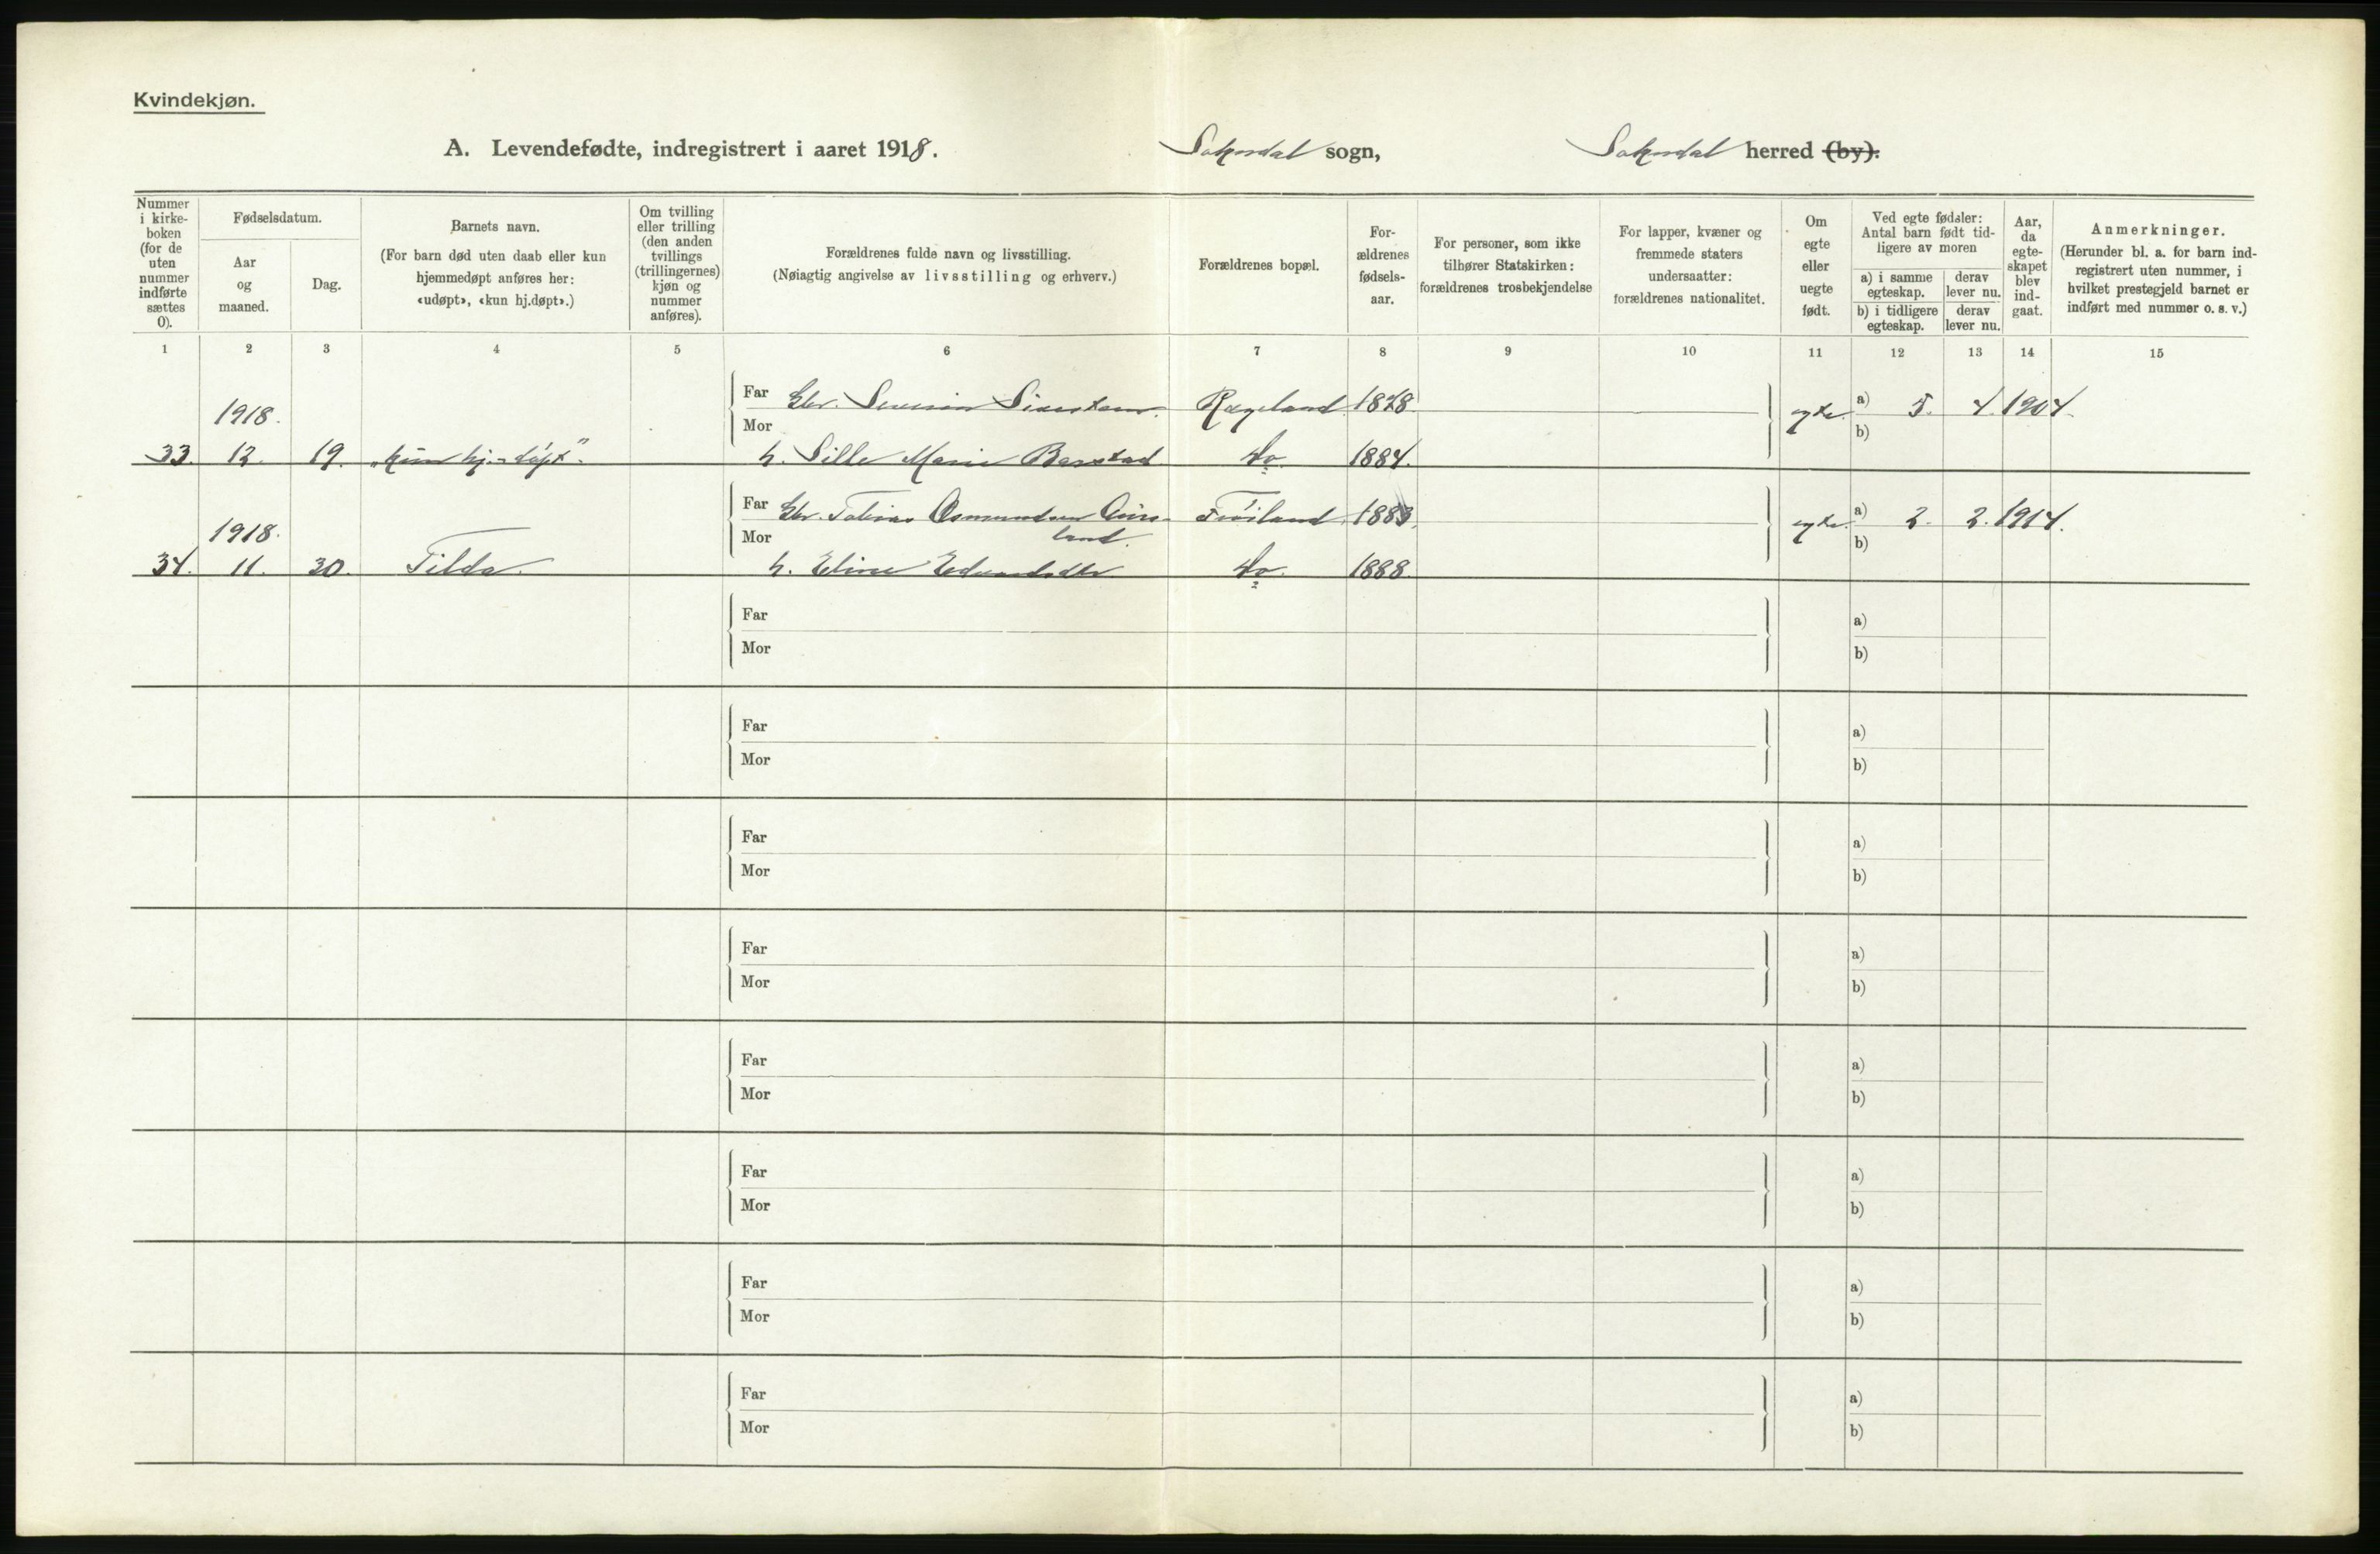 Kvindekjøn.
A. Levendefødte, indregistrert i aaret 1918. Sokndal sogn, Sokndal herred (by).
Nummer i kirke-boken (for de uten nummer indførte sættes 0).
Fødselsdatum.
Aar og maaned.
Dag.
Barnets navn.
(For barn død uten daab eller kun hjemmedøpt anføres her: «udøpt», «kun hj.døpt».)
Om tvilling eller trilling (den anden tvillings (trillingernes) kjøn og nummer anføres).
Forældrenes fulde navn og livsstilling.
(Nøiagtig angivelse av livsstilling og erhverv.)
Forældrenes bopæl.
For-ældrenes fødsels-aar.
For personer, som ikke tilhører Statskirken: forældrenes trosbekjendelse
For lapper, kvæner og fremmede staters undersaatter: forældrenes nationalitet.
Om egte eller uegte født.
Ved egte fødsler: Antal barn født tid-ligere av moren
a) i samme egteskap.
derav lever nu.
b) i tidligere egteskap.
derav lever nu.
Aar, da egte-skapet blev ind-gaat.
Anmerkninger.
(Herunder bl. a. for barn ind-registrert uten nummer, i hvilket prestegjeld barnet er indført med nummer o. s. v.)
1 2 3 4 5 6 7 8 9 10 11 12 13 14 15
1918. Far Gbr. Severin Rægeland 1878. egte. a) 5. 4. 1904.
Mor b)
33. 12. 19. „kun hj.-døpt". h. Sille Marie Barstad do. 1884.
1918. Far Gbr. Tobias Osmundsen Frøiland 1883. egte. a) 2. 2. 1914.
Mor land. b)
34. 11. 30. Tilda. h. Eline Edvardsdtr. do. 1888.
Far a)
Mor b)
Far a)
Mor b)
Far a)
Mor b)
Far a)
Mor b)
Far a)
Mor b)
Far a)
Mor b)
Far a)
Mor b)
Far a)
Mor b)